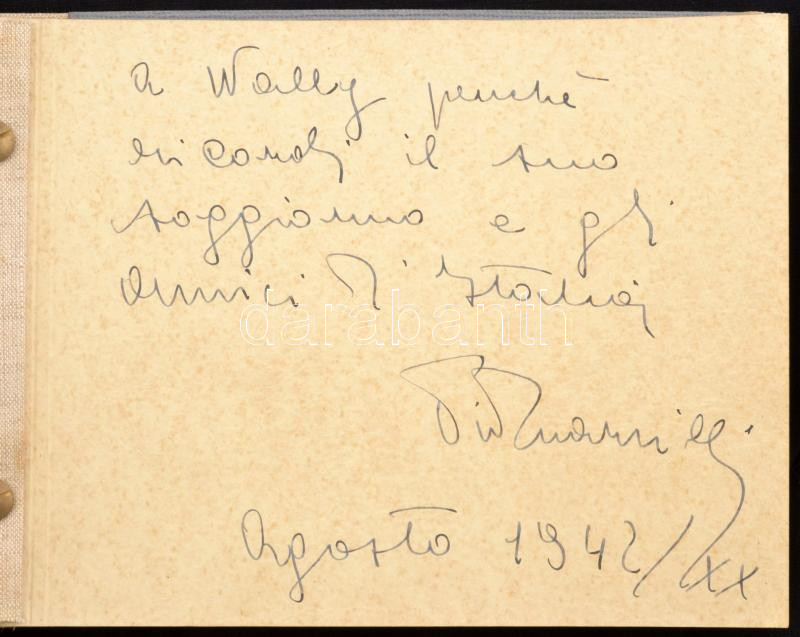 a Wally perché
ricordi il suo
soggiorno e gli
amici d'Italia
Agosto 1942/XX
darabanth